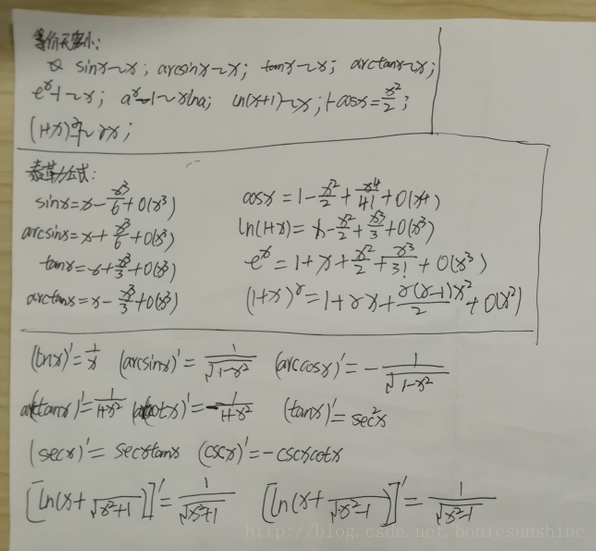 等价无穷小:
sinx~x; arcsinx~x; tanx~x; arctanx~x;
e^x-1~x; a^x-1~xlna; ln(x+1)~x; 1-cosx=x²/2;
(1+x)^r-1~rx;
泰勒公式:
sinx=x-x³/6+o(x³) cosx=1-x²/2+x⁴/4!+o(x⁴)
arcsinx=x+x³/6+o(x³) ln(1+x)=x-x²/2+x³/3+o(x³)
tanx=x+x³/3+o(x³) e^x=1+x+x²/2+x³/3!+o(x³)
arctanx=x-x³/3+o(x³) (1+x)^r=1+rx+r(r-1)x²/2+o(x²)
(lnx)'=1/x (arcsinx)'=1/√(1-x²) (arccosx)'=-1/√(1-x²)
(arctanx)'=1/(1+x²) (arccotx)'=-1/(1+x²) (tanx)'=sec²x
(secx)'=secxtanx (cscx)'=-cscxcotx
[ln(x+√(x²+1))]'=1/√(x²+1) [ln(x+√(x²-1))]'=1/√(x²-1)
http://blog.csdn.net/boniesunshine